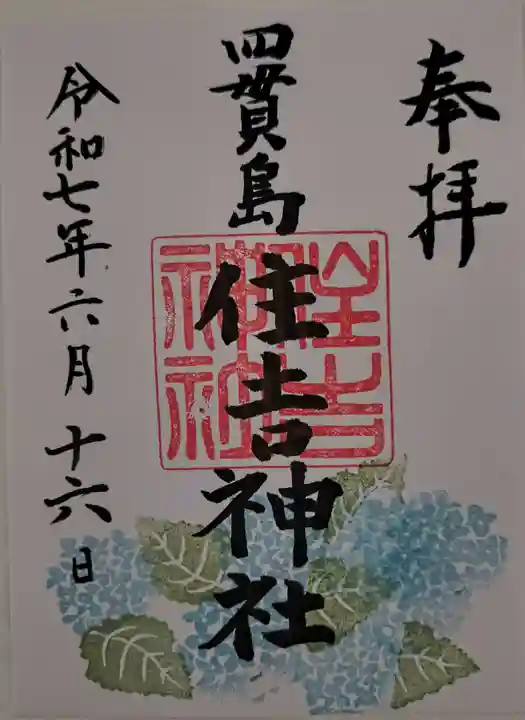 奉拝
四貫島
住吉神社
令和七年六月十六日